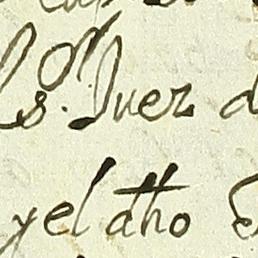 s. Juez d
y el dho